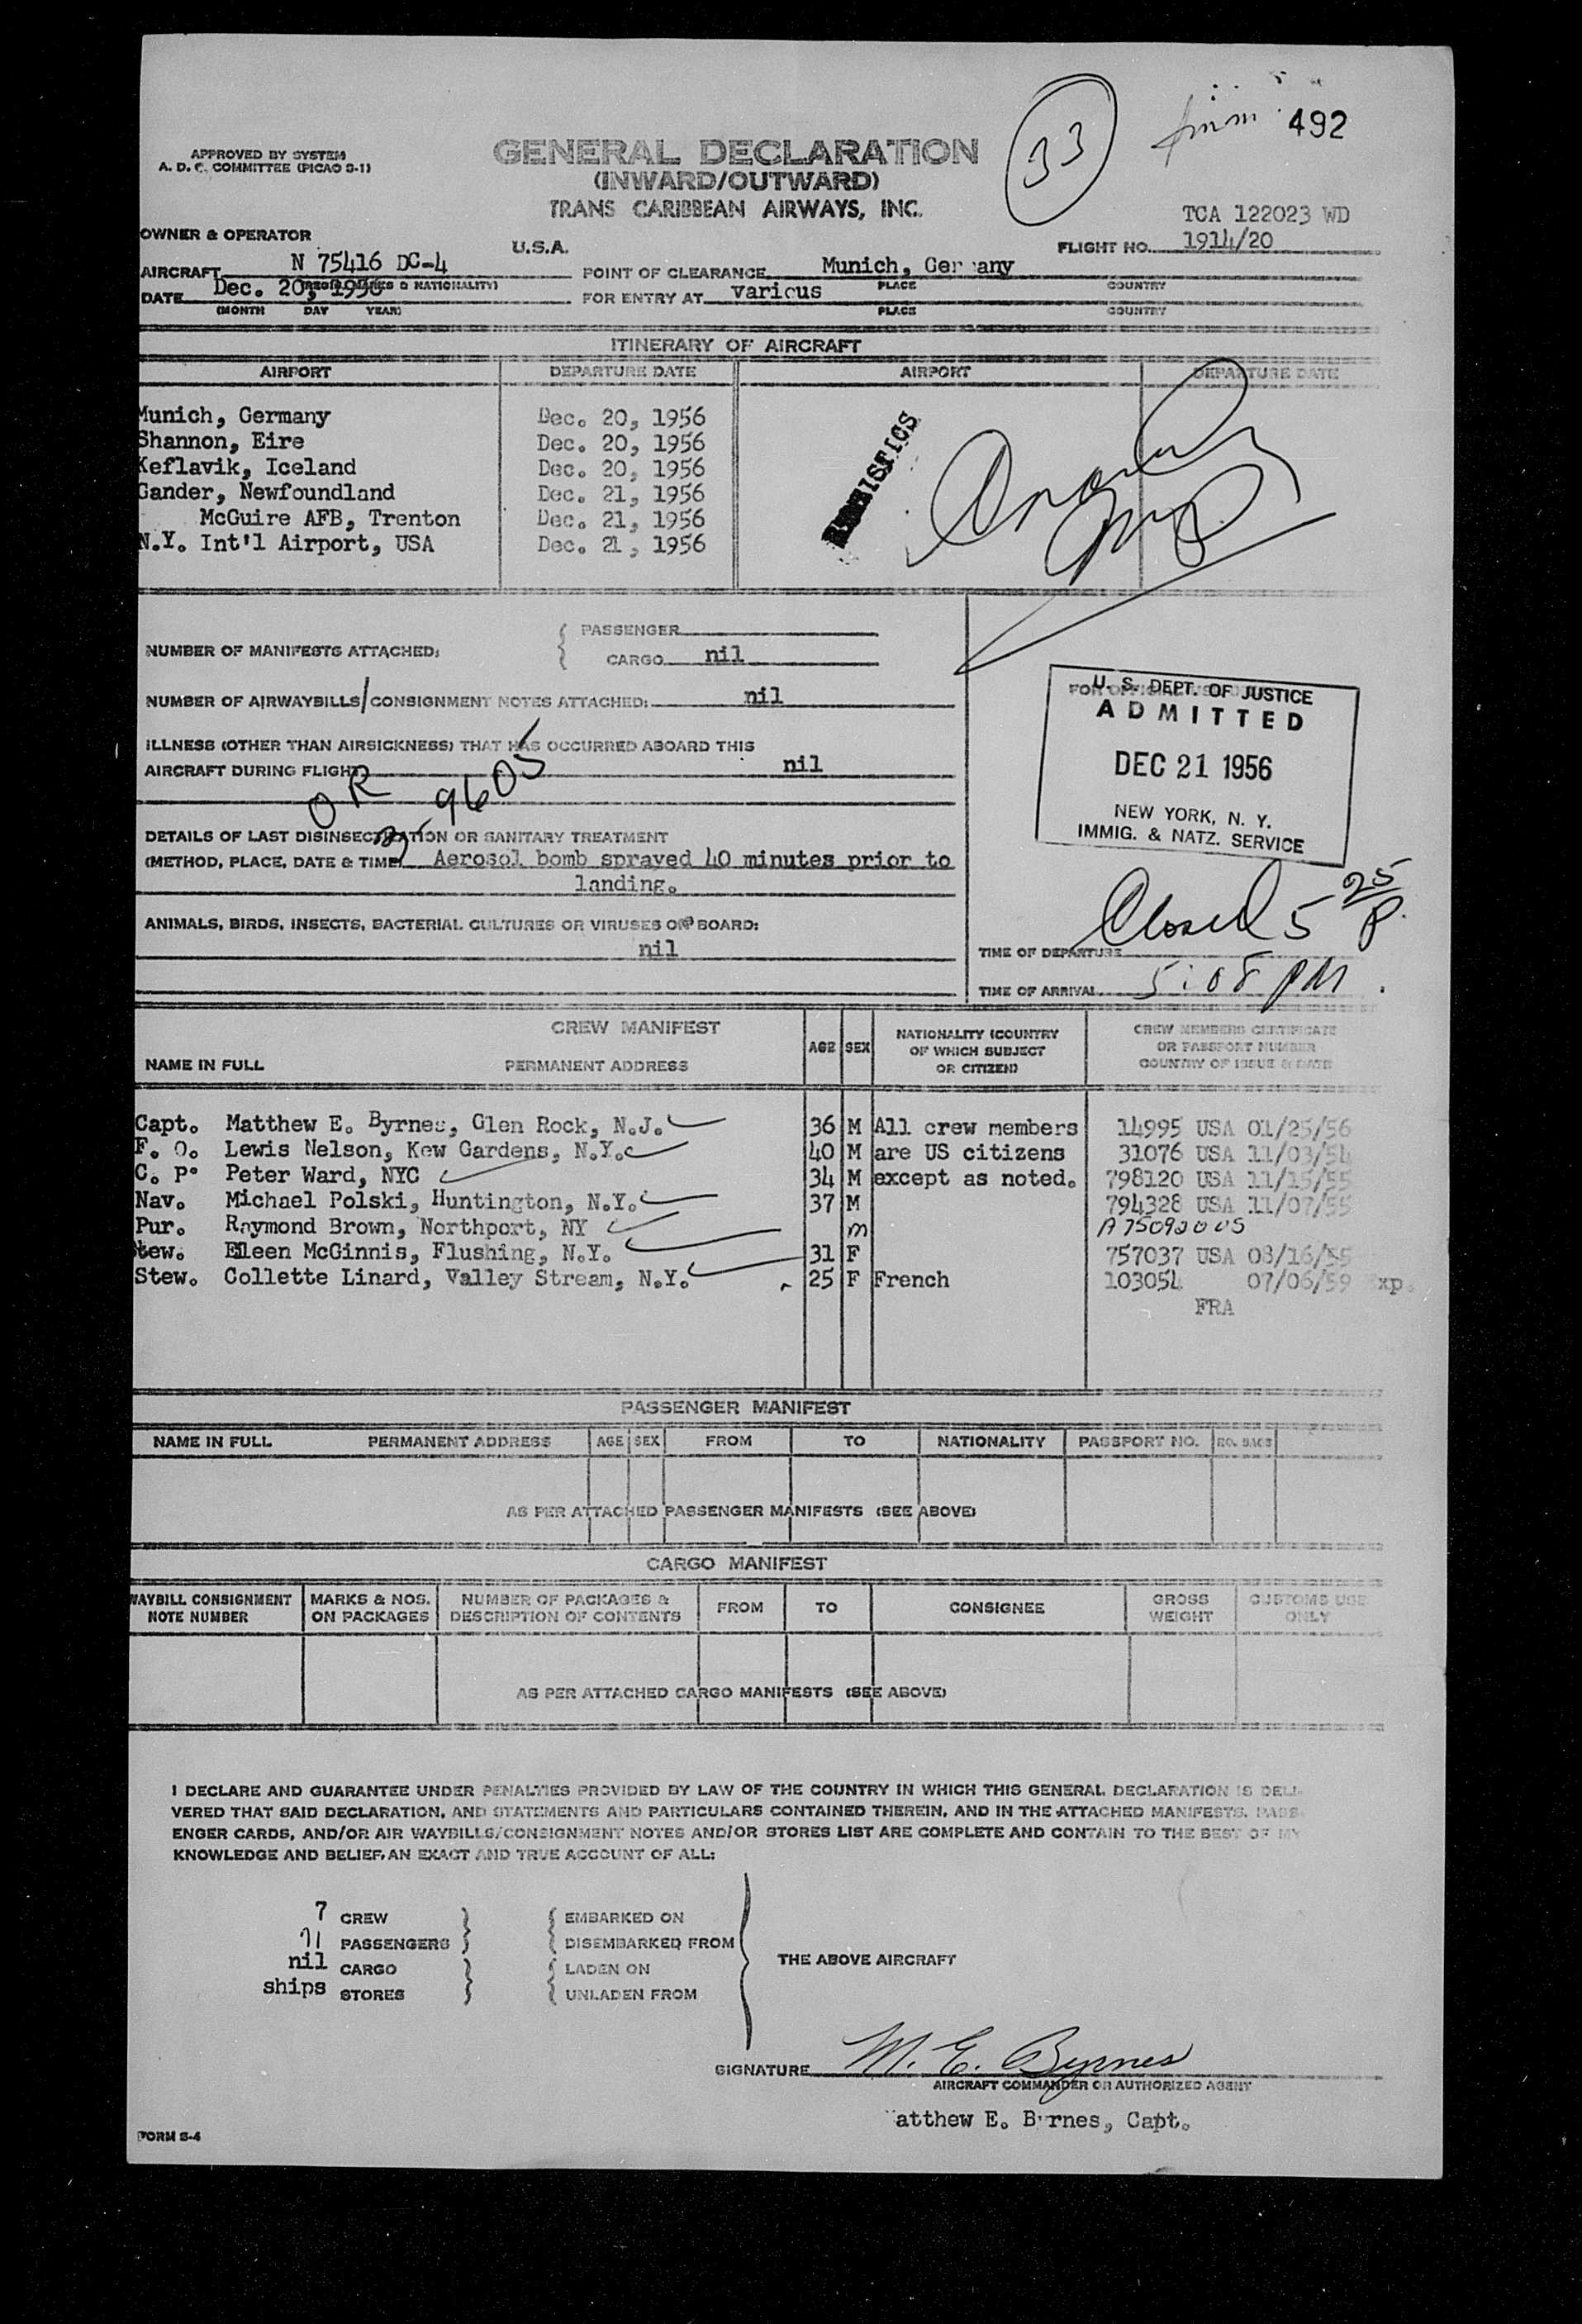 33
492
APPROVED BY SYSTEM
A. D. C. COMMITTEE (PICAO S-1)
GENERAL DECLARATION
(INWARD/OUTWARD)
TRANS CARIBBEAN AIRWAYS, INC.
TCA 122023 WD
OWNER & OPERATOR
U.S.A.
FLIGHT NO. 1914/20
AIRCRAFT N 75416 DC-4
POINT OF CLEARANCE Munich, Germany
PLACE COUNTRY
DATE Dec. 20, 1956
FOR ENTRY AT various
(MONTH DAY YEAR)
PLACE COUNTRY
ITINERARY OF AIRCRAFT
AIRPORT DEPARTURE DATE AIRPORT DEPARTURE DATE
Munich, Germany Dec. 20, 1956
Shannon, Eire Dec. 20, 1956
Keflavik, Iceland Dec. 20, 1956
Gander, Newfoundland Dec. 21, 1956
McGuire AFB, Trenton Dec. 21, 1956
N.Y. Int'l Airport, USA Dec. 21, 1956
NUMBER OF MANIFESTS ATTACHED:
PASSENGER
CARGO nil
NUMBER OF AIRWAYBILLS/CONSIGNMENT NOTES ATTACHED: nil
ILLNESS (OTHER THAN AIRSICKNESS) THAT HAS OCCURRED ABOARD THIS
AIRCRAFT DURING FLIGHT nil
OR
9605
DETAILS OF LAST DISINSECTIZATION OR SANITARY TREATMENT
(METHOD, PLACE, DATE & TIME) Aerosol bomb sprayed 40 minutes prior to
landing.
ANIMALS, BIRDS, INSECTS, BACTERIAL CULTURES OR VIRUSES ON BOARD:
nil
U. S. DEPT. OF JUSTICE
ADMITTED
DEC 21 1956
NEW YORK, N. Y.
IMMIG. & NATZ. SERVICE
Closed 5 25 P.
TIME OF DEPARTURE
TIME OF ARRIVAL 5:08 PM.
CREW MANIFEST
NAME IN FULL PERMANENT ADDRESS
AGE SEX
NATIONALITY (COUNTRY
OF WHICH SUBJECT
OR CITIZEN)
CREW MEMBERS CERTIFICATE
OR PASSPORT NUMBER
COUNTRY OF ISSUE & DATE
Capt. Matthew E. Byrnes, Glen Rock, N.J. 36 M All crew members 14995 USA 01/25/56
F. O. Lewis Nelson, Kew Gardens, N.Y. 40 M are US citizens 31076 USA 11/03/54
C. P. Peter Ward, NYC 34 M except as noted. 798120 USA 11/15/55
Nav. Michael Polski, Huntington, N.Y. 37 M 794328 USA 11/07/55
Pur. Raymond Brown, Northport, NY m
Stew. Eileen McGinnis, Flushing, N.Y. 31 F 757037 USA 08/16/55
Stew. Collette Linard, Valley Stream, N.Y. 25 F French 103054 07/06/59 Exp.
FRA
PASSENGER MANIFEST
NAME IN FULL PERMANENT ADDRESS AGE SEX FROM TO NATIONALITY PASSPORT NO. NO. BAGS
AS PER ATTACHED PASSENGER MANIFESTS (SEE ABOVE)
CARGO MANIFEST
WAYBILL CONSIGNMENT
NOTE NUMBER
MARKS & NOS.
ON PACKAGES
NUMBER OF PACKAGES &
DESCRIPTION OF CONTENTS
FROM
TO
CONSIGNEE
GROSS
WEIGHT
CUSTOMS USE
ONLY
AS PER ATTACHED CARGO MANIFESTS (SEE ABOVE)
I DECLARE AND GUARANTEE UNDER PENALTIES PROVIDED BY LAW OF THE COUNTRY IN WHICH THIS GENERAL DECLARATION IS DELI-
VERED THAT SAID DECLARATION, AND STATEMENTS AND PARTICULARS CONTAINED THEREIN, AND IN THE ATTACHED MANIFESTS, PASS-
ENGER CARDS, AND/OR AIR WAYBILLS/CONSIGNMENT NOTES AND/OR STORES LIST ARE COMPLETE AND CONTAIN TO THE BEST OF MY
KNOWLEDGE AND BELIEF, AN EXACT AND TRUE ACCOUNT OF ALL:
7 CREW EMBARKED ON
71 PASSENGERS DISEMBARKED FROM
nil CARGO LADEN ON
ships STORES UNLADEN FROM
THE ABOVE AIRCRAFT
SIGNATURE M. E. Byrnes
AIRCRAFT COMMANDER OR AUTHORIZED AGENT
atthew E. Byrnes, Capt.
FORM S-4